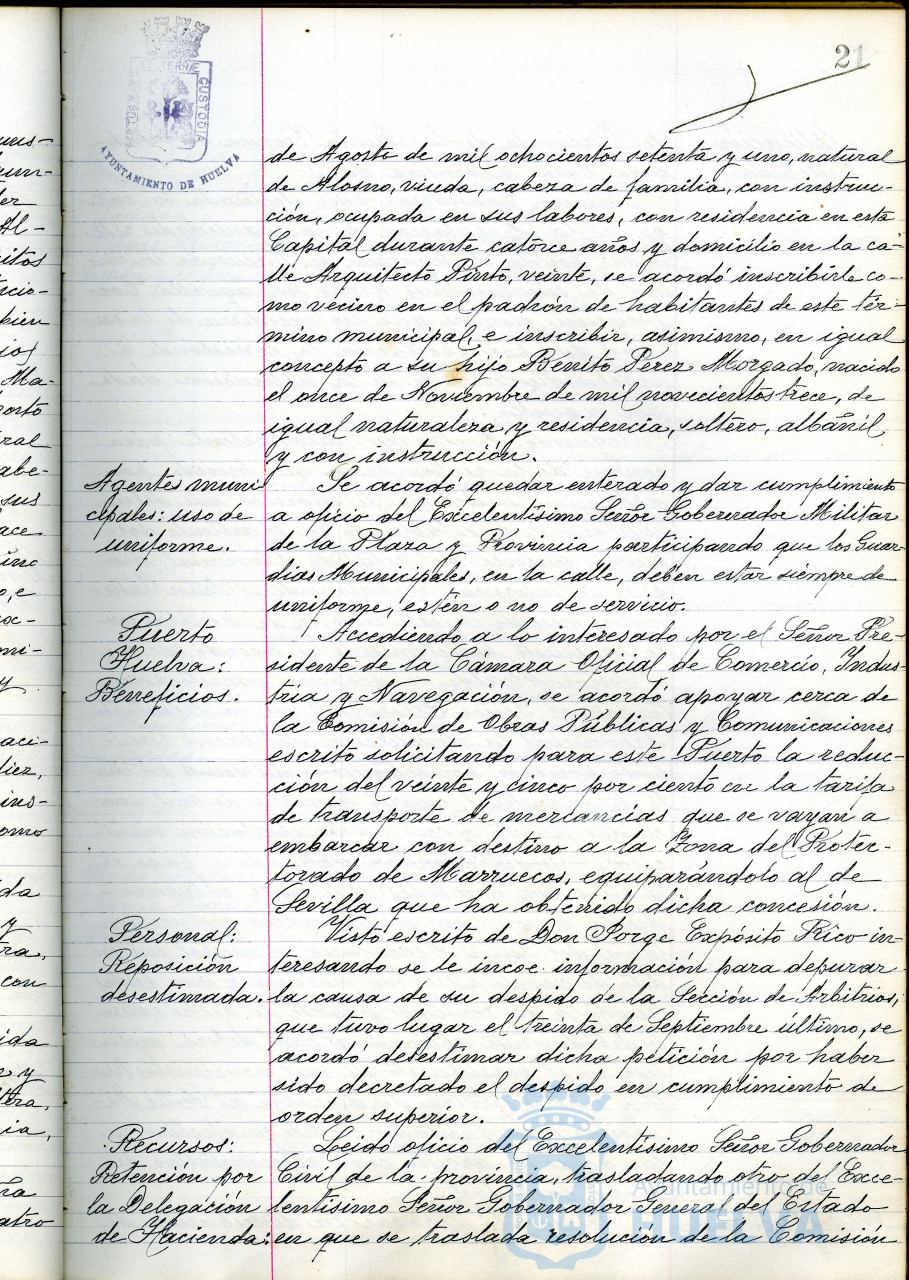 21
PORTUS MARIS ET TERRAE CUSTODIA
AYUNTAMIENTO DE HUELVA
de Agosto de mil ochocientos setenta y uno, natural
de Alosno, viuda, cabeza de familia, con instruc-
ción, ocupada en sus labores, con residencia en esta
Capital durante catorce años y domicilio en la ca-
lle Arquitecto Pinto, veinte, se acordó inscribirle co-
mo vecino en el padrón de habitantes de este tér-
mino municipal, e inscribir, asimismo, en igual
concepto a su hijo Benito Pérez Morgado, nacido
el once de Noviembre de mil novecientos trece, de
igual naturaleza y residencia, soltero, albañil
y con instrucción.
Agentes muni
cipales: uso de
uniforme.
Se acordó quedar enterado y dar cumplimiento
a oficio del Excelentísimo Señor Gobernador Militar
de la Plaza y Provincia participando que los Guar-
dias Municipales, en la calle, deben estar siempre de
uniforme, estén o no de servicio.
Puerto
Huelva:
Beneficios.
Accediendo a lo interesado por el Señor Pre-
sidente de la Cámara Oficial de Comercio, Indus-
tria y Navegación, se acordó apoyar cerca de
la Comisión de Obras Públicas y Comunicaciones
escrito solicitando para este Puerto la reduc-
ción del veinte y cinco por ciento en la tarifa
de transporte de mercancías que se vayan a
embarcar con destino a la Zona del Protec-
torado de Marruecos, equiparándolo al de
Sevilla que ha obtenido dicha concesión.
Personal:
Reposición
desestimada.
Visto escrito de Don Jorge Expósito Rico in-
teresando se le incoe información para depurar
la causa de su despido de la Sección de Arbitrios,
que tuvo lugar el treinta de Septiembre último, se
acordó desestimar dicha petición por haber
sido decretado el despido en cumplimiento de
orden superior.
Recursos:
Retención por
la Delegación
de Hacienda:
Leido oficio del Excelentísimo Señor Gobernador
Civil de la provincia, trasladando otro del Exce-
lentísimo Señor Gobernador General del Estado
en que se traslada resolución de la Comisión
Ayuntamiento de
HUELVA